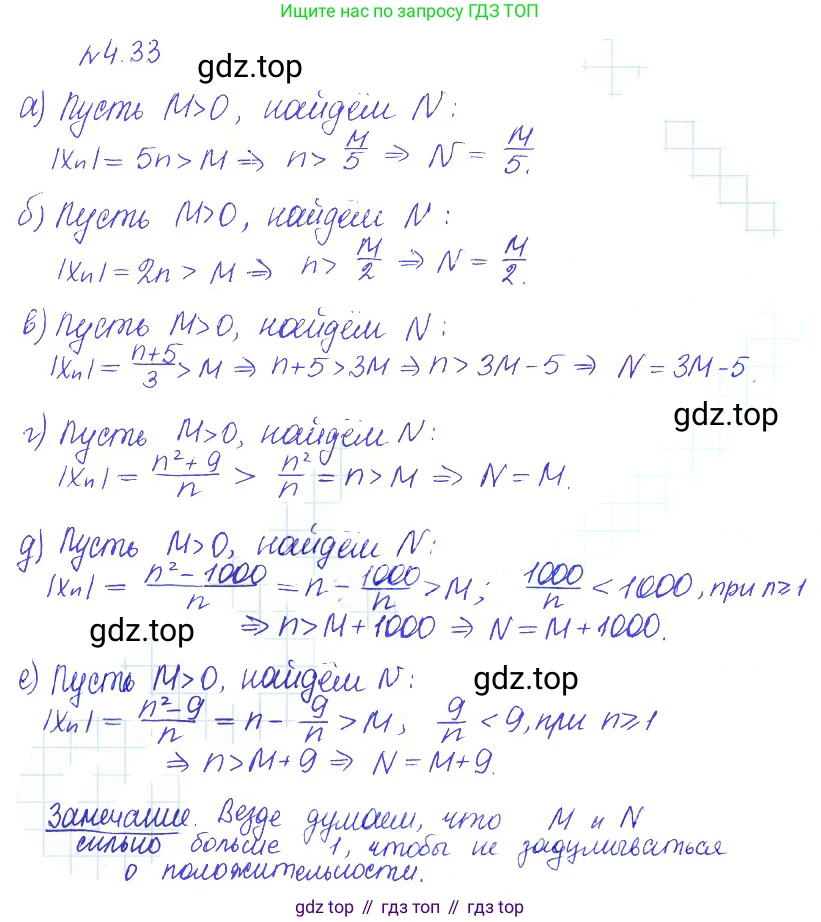 Ищите нас по запросу ГДЗ ТОП
№4.33
gdz.top
а) Пусть M>0, найдём N:
|Xn| = 5n > M ⇒ n > M/5 ⇒ N = M/5.
б) Пусть M>0, найдём N:
|Xn| = 2n > M ⇒ n > M/2 ⇒ N = M/2.
в) Пусть M>0, найдём N:
|Xn| = (n+5)/3 > M ⇒ n+5 > 3M ⇒ n > 3M-5 ⇒ N = 3M-5.
gdz.top
г) Пусть M>0, найдём N:
|Xn| = (n²+9)/n > n²/n = n > M ⇒ N = M.
д) Пусть M>0, найдём N:
|Xn| = (n²-1000)/n = n - 1000/n > M; 1000/n < 1000, при n≥1
gdz.top
⇒ n > M+1000 ⇒ N = M+1000.
е) Пусть M>0, найдём N:
gdz.top
|Xn| = (n²-9)/n = n - 9/n > M; 9/n < 9, при n≥1
⇒ n > M+9 ⇒ N = M+9.
Замечание. Везде думаем, что M и N
сильно больше 1, чтобы не задумываться
о положительности.
gdz.top // гдз.топ // гдз.top